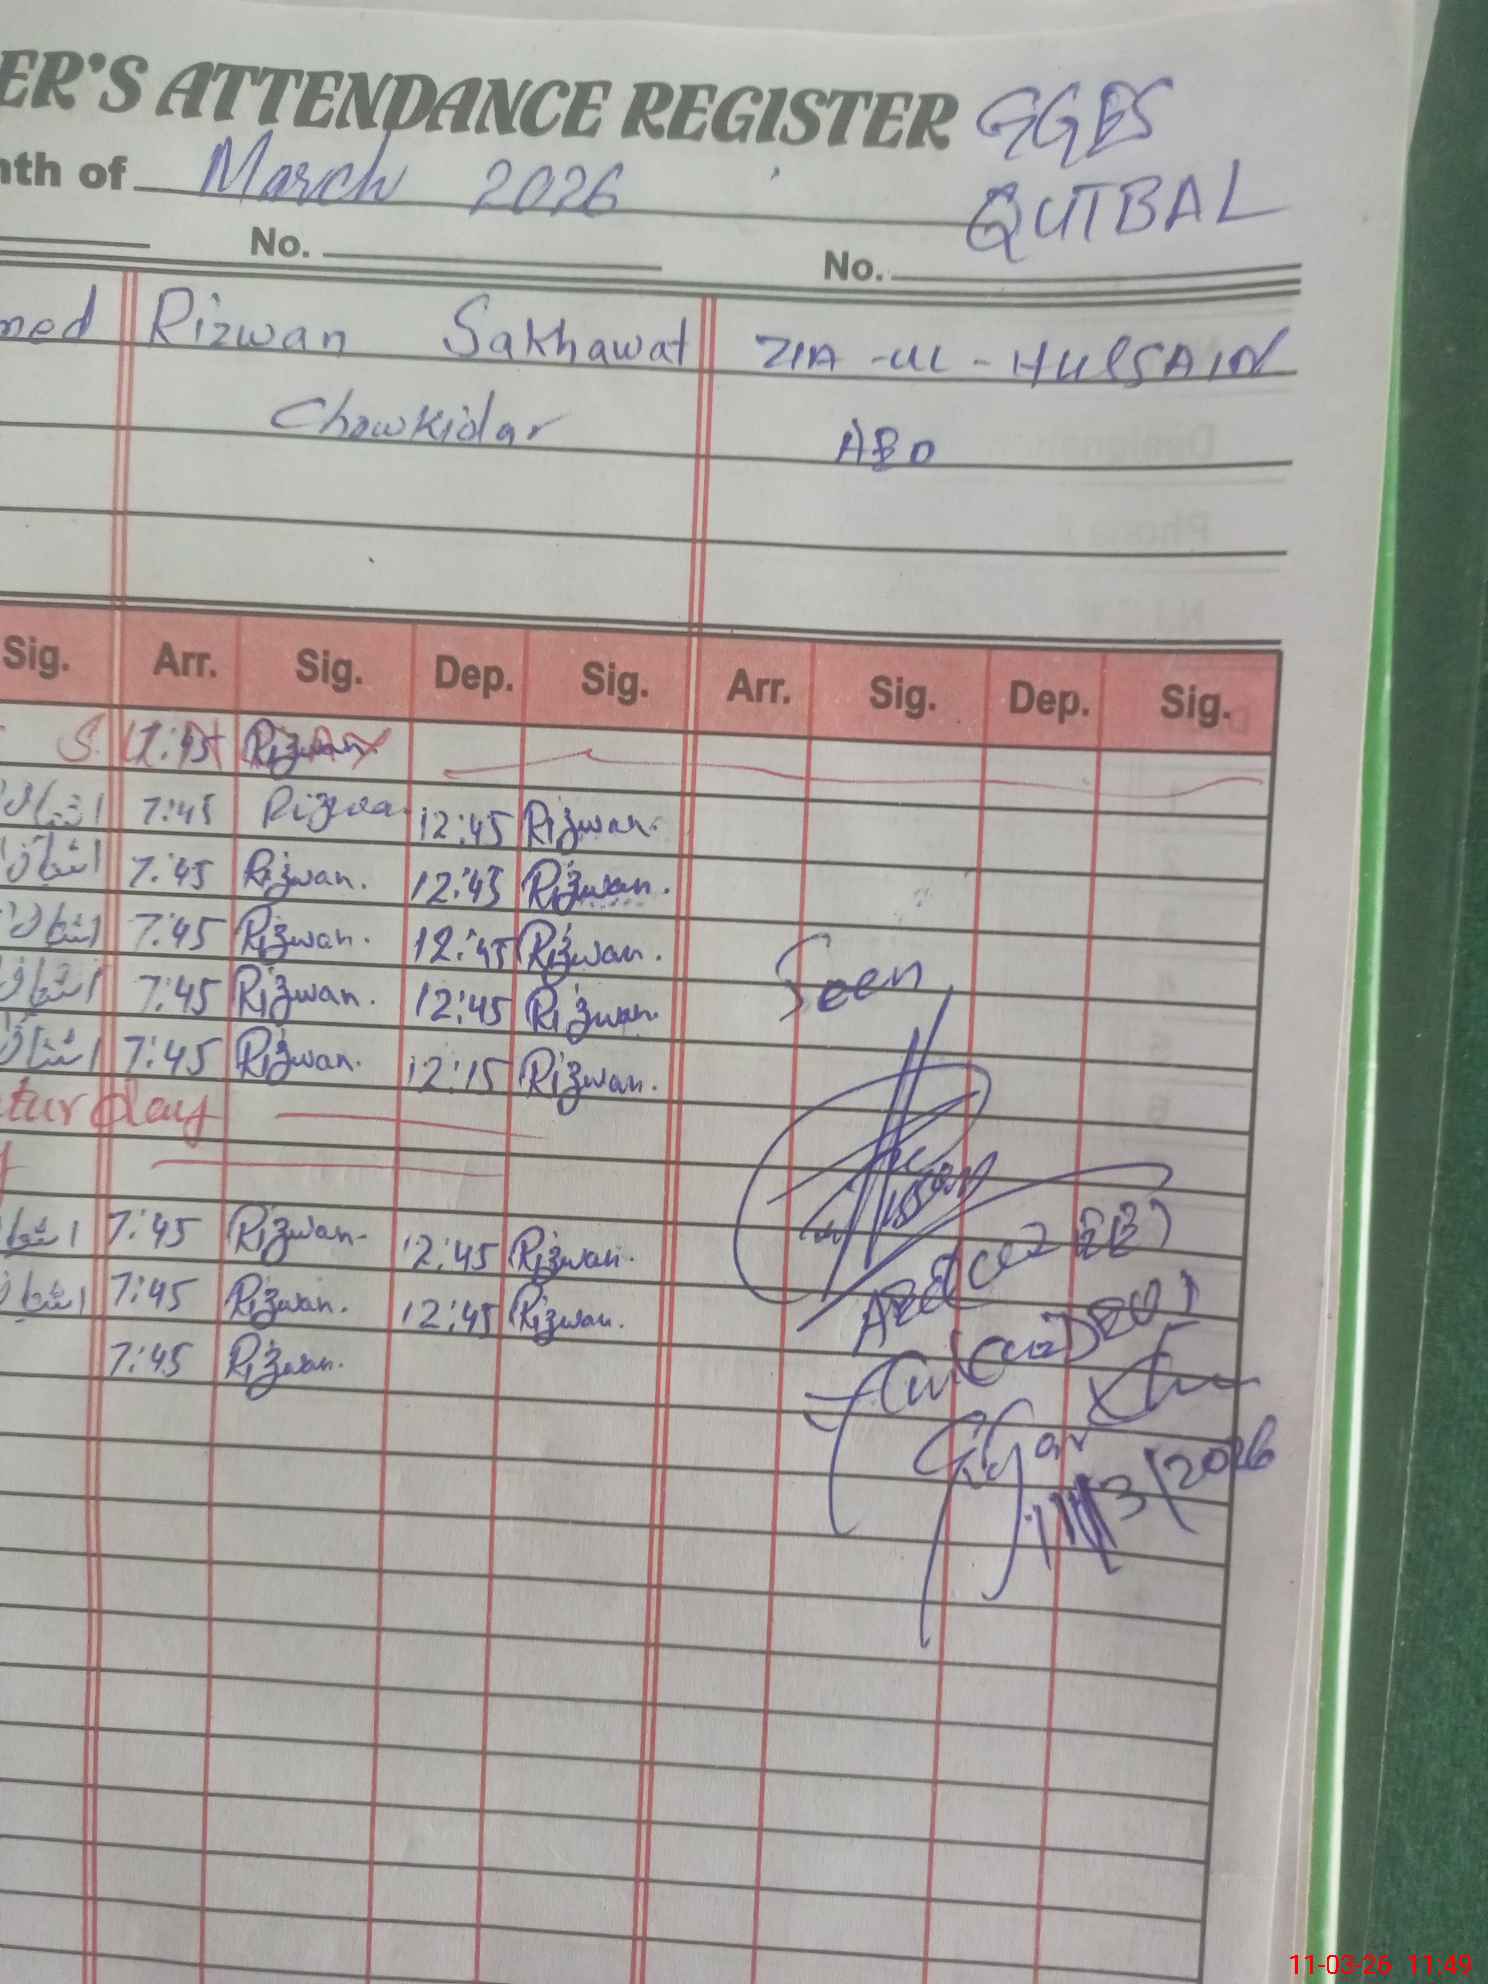 ER'S ATTENDANCE REGISTER GGES
nth of March 2026 QUTBAL
No. No.
med Rizwan Sakhawat ZIA-UL-HUSSAIN
Chowkidar AEO
Sig. Arr. Sig. Dep. Sig. Arr. Sig. Dep. Sig.
S
اشفاق 7:45 Rizwa 12:45 Rizwan.
اشفاق 7:45 Rizwan. 12:45 Rizwan.
اشفاق 7:45 Rizwan. 12:45 Rizwan.
اشفاق 7:45 Rizwan. 12:45 Rizwan.
اشفاق 7:45 Rizwan. 12:15 Rizwan.
Seen
turday
اشفاق 7:45 Rizwan. 12:45 Rizwan.
اشفاق 7:45 Rizwan. 12:45 Rizwan.
7:45 Rizwan.
11/3/2026
11-03-26 11:49